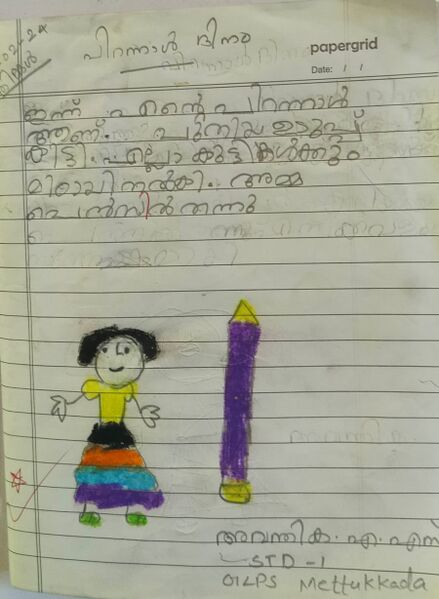 പിറന്നാൾ ദിനം
papergrid
Date: / /
ഇന്ന് എന്റെ പിറന്നാൾ
ആണ്. പുതിയ ഉടുപ്പ്
കിട്ടി. എല്ലാ കുട്ടികൾക്കും
മിഠായി നൽകി. അമ്മ
പെൻസിൽ തന്നു
അവന്തിക. എ. എസ്
STD - 1
GLPS Mettukkada